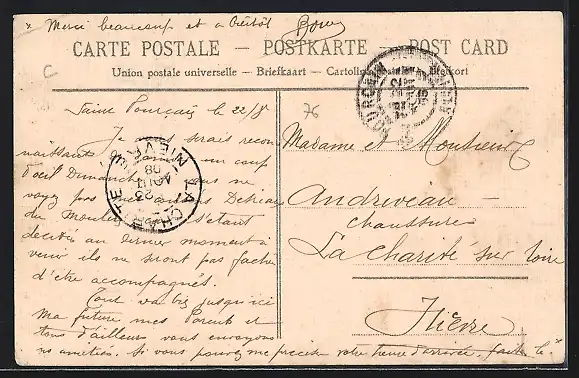 * Merci beaucoup et à bientôt
CARTE POSTALE — POSTKARTE — POST CARD
Union postale universelle — Briefkaart — Cartolina
C
76
Saint Pourçain le 22/8
Je vous serais recon
naissant un coup
d'œil Dimanche ne
voyez pas
du s'étant
décidés au dernier moment à
venir ils ne seront pas fachés
d'être accompagnés.
Tout va bien jusqu'ici
Ma future mes Parents et
tous d'ailleurs vous envoyons
nos amitiés. Si vous pouvez me préciser votre heure d'arrivée, faites le *
LA CHARITÉ
NIÈVRE
23
AOUT
08
Madame et Monsieur
Andriveau —
Chaussures
La Charité sur Loire
Nièvre